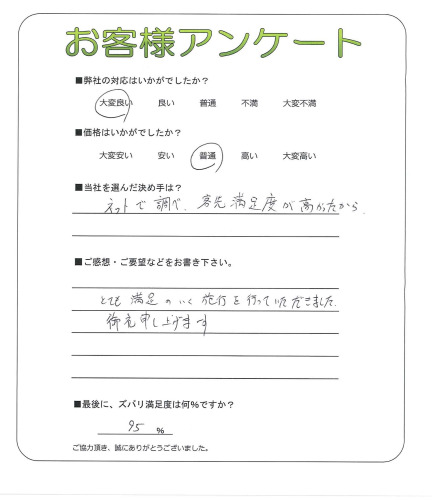 お客様アンケート
■弊社の対応はいかがでしたか？
大変良い 良い 普通 不満 大変不満
■価格はいかがでしたか？
大変安い 安い 普通 高い 大変高い
■当社を選んだ決め手は？
ネットで調べ、 満足度が高かったから.
■ご感想・ご要望などをお書き下さい。
とても 満足のいく 施行を行っていただきました.
申し上げます
■最後に、ズバリ満足度は何％ですか？
95 ％
ご協力頂き、誠にありがとうございました。